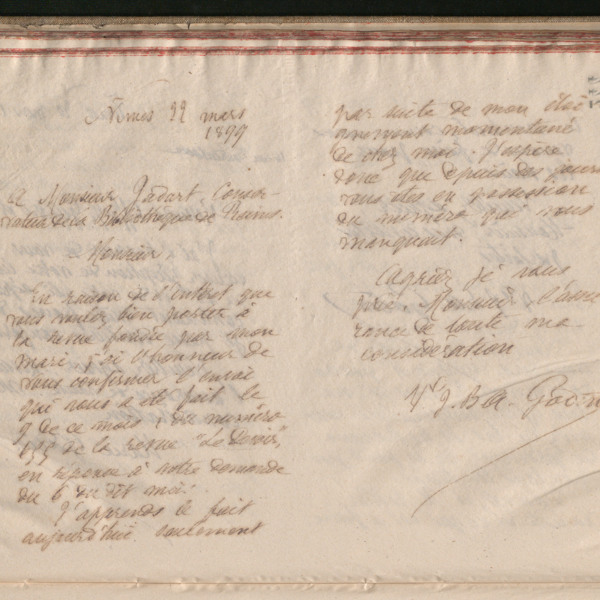 Nimes 22 mars
1899
A Monsieur Jadart, Conser-
vateur de la Bibliothèque de Reims.
Monsieur
En raison de l'intérêt que
vous voulez bien porter à
la revue fondée par mon
mari, j'ai l'honneur de
vous confirmer l'envoi
qui vous a été fait le
9 de ce mois, du numéro
155 de la revue "Le Devoir",
en réponse à votre demande
du 6 du dit mois.
J'apprends le fait
aujourd'hui seulement
par suite de mon éloi
gnement momentané
de chez moi. J'espère
donc que depuis des jours
vous êtes en possession
du numéro qui vous
manquait.
Agréez je vous
prie, Monsieur l'assu
rance de toute ma
considération
Vve J. Bte A. Godin